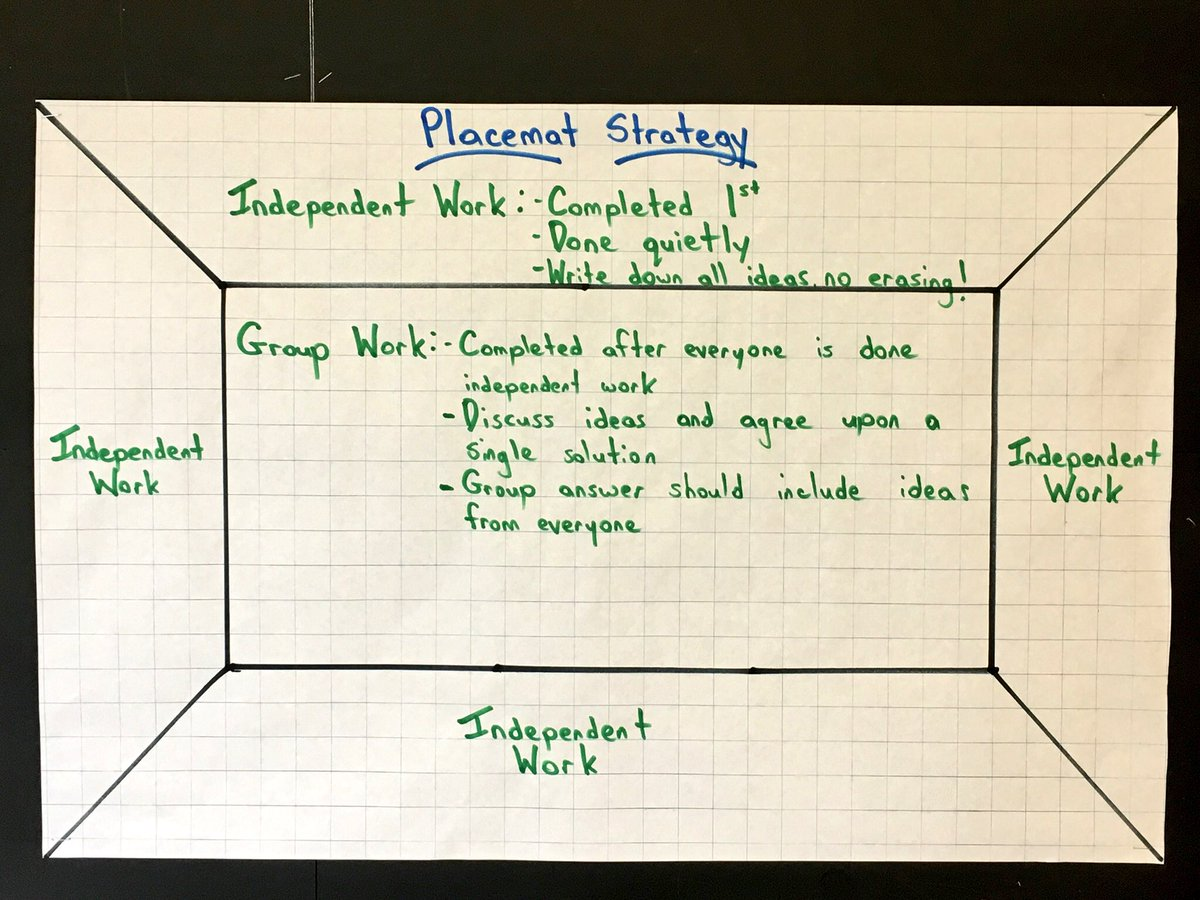 Placemat Strategy
Independent Work: - Completed 1st
- Done quietly
- Write down all ideas, no erasing!
Group Work: - Completed after everyone is done
independent work
- Discuss ideas and agree upon a
single solution
- Group answer should include ideas
from everyone
Independent
Work
Independent
Work
Independent
Work